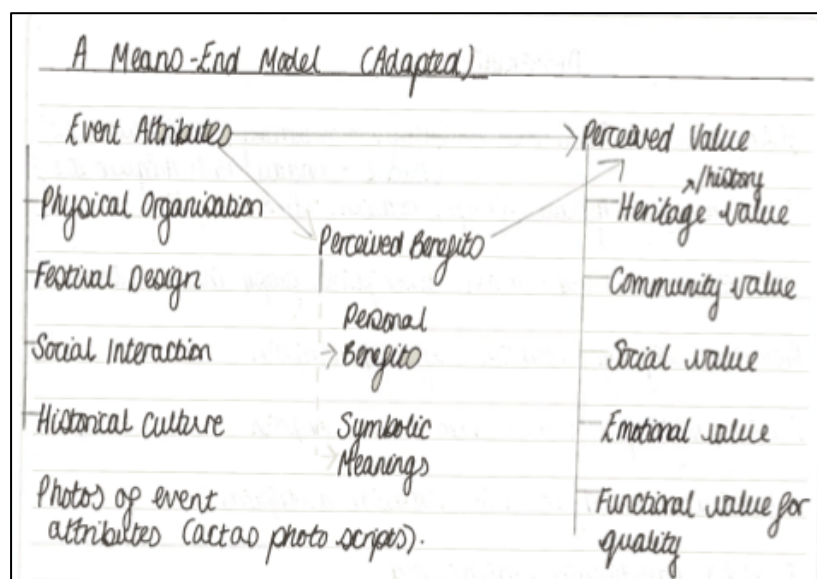 A Means-End Model (Adapted)
Event Attributes
Physical Organisation
Festival Design
Social Interaction
Historical Culture
Photos of event
attributes (act as photo scripts).
Perceived Benefits
Personal
Benefits
Symbolic
Meanings
Perceived Value
/history
Heritage value
Community value
Social value
Emotional value
Functional value for
quality